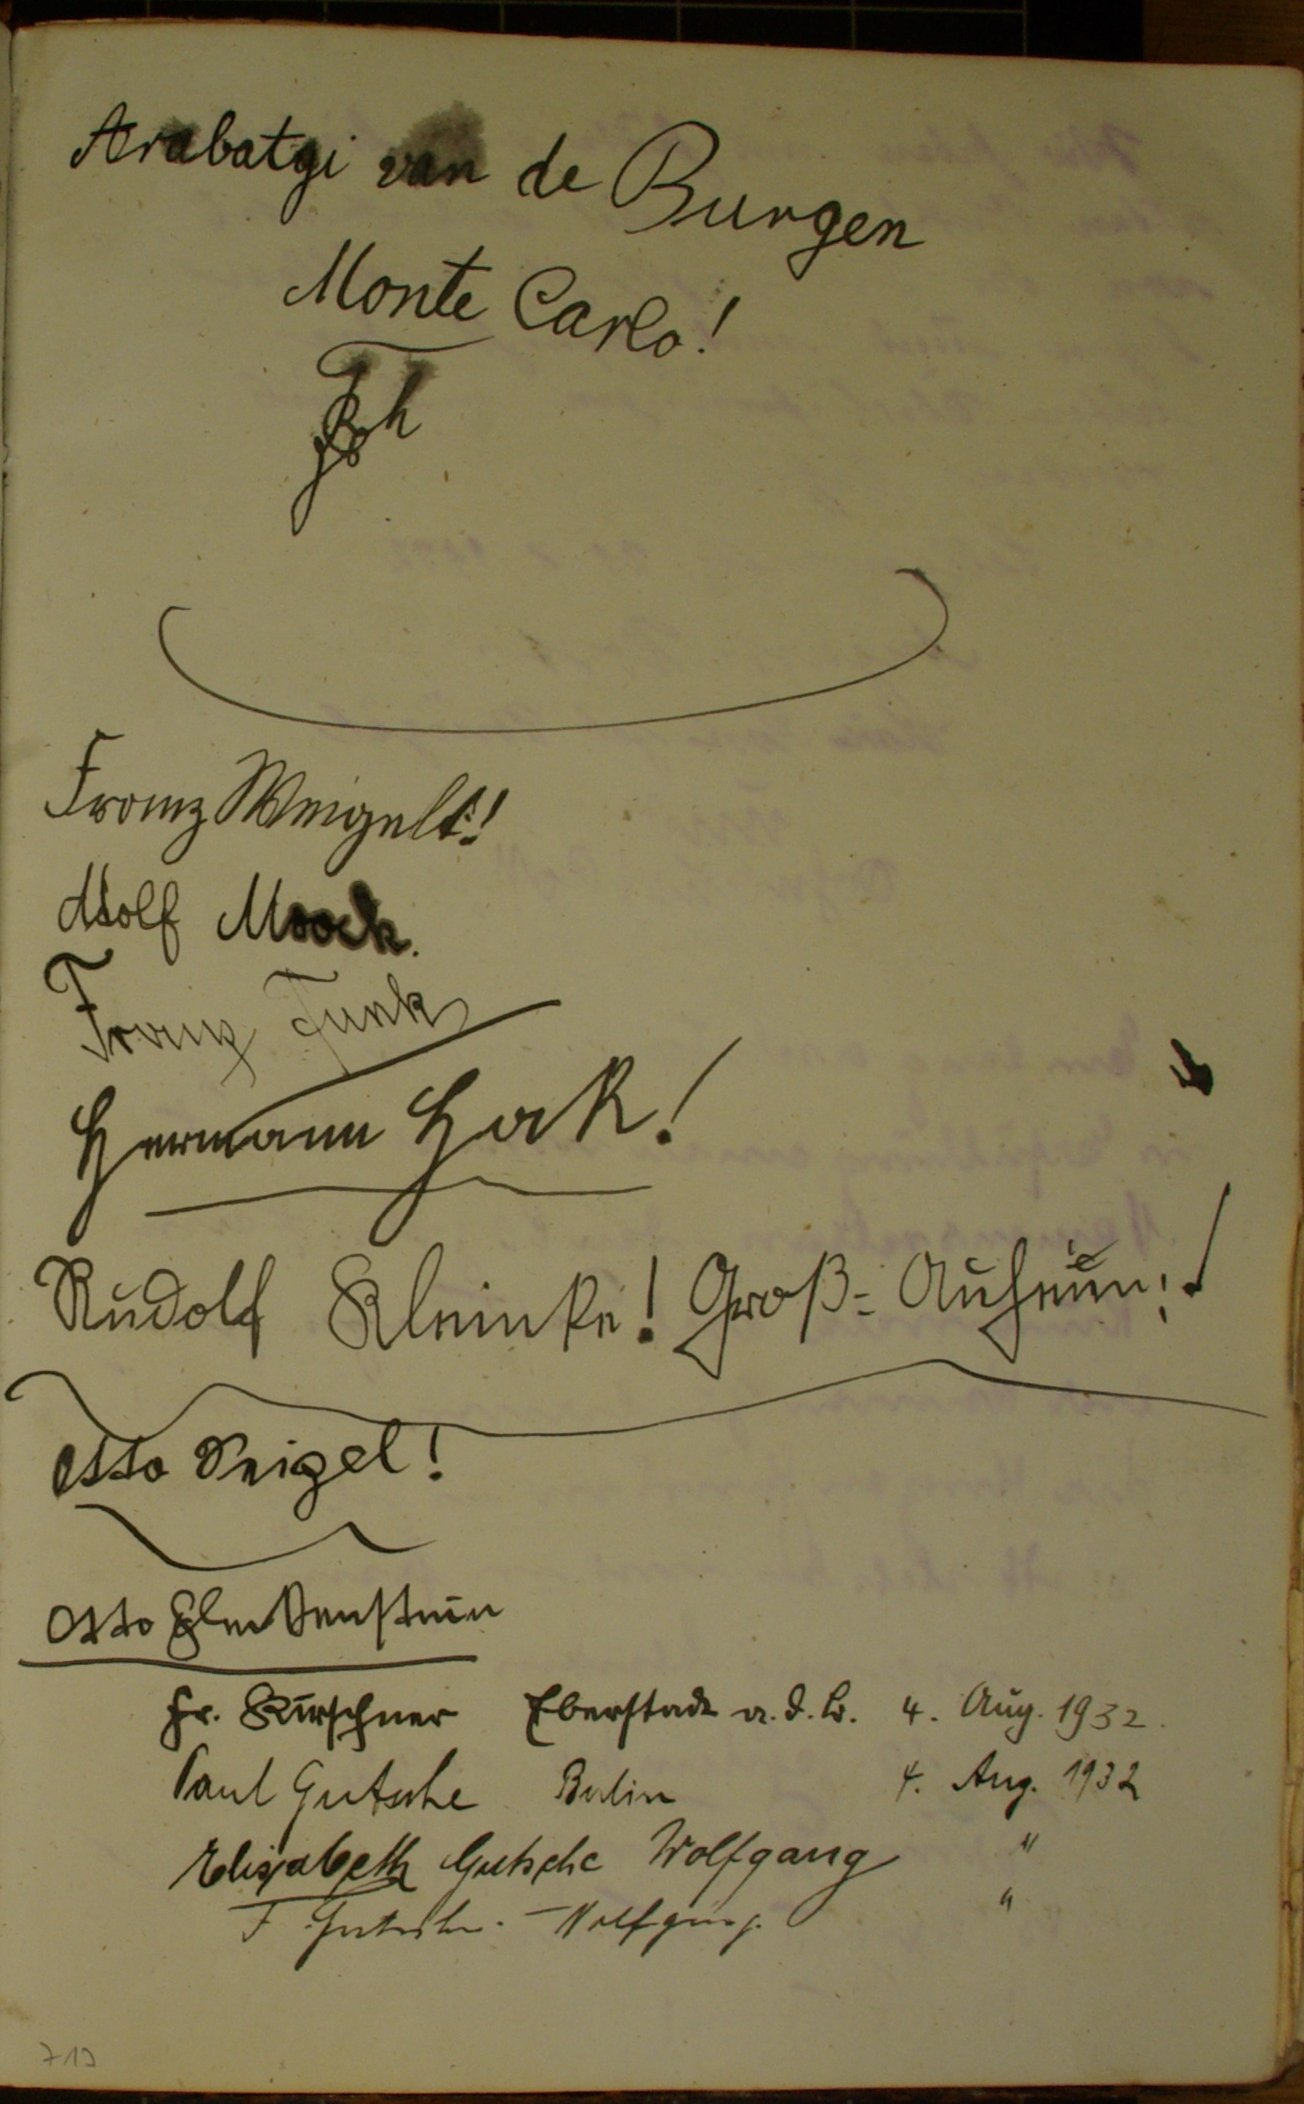 Arabatgi van de Burgen
Monte Carlo!
Franz Weigelt!
Adolf Moock.
Franz Funk
Hermann Hak!
Rudolf Kleinke! Groß-Auheim!
Otto Seigel!
Otto
Fr. Kürschner Eberstadt a. d. B. 4. Aug. 1932.
Paul Gutsche Berlin 4. Aug. 1932
Elisabeth Gutsche Wolfgang "
F. Gutsche. – Wolfgang. "
713